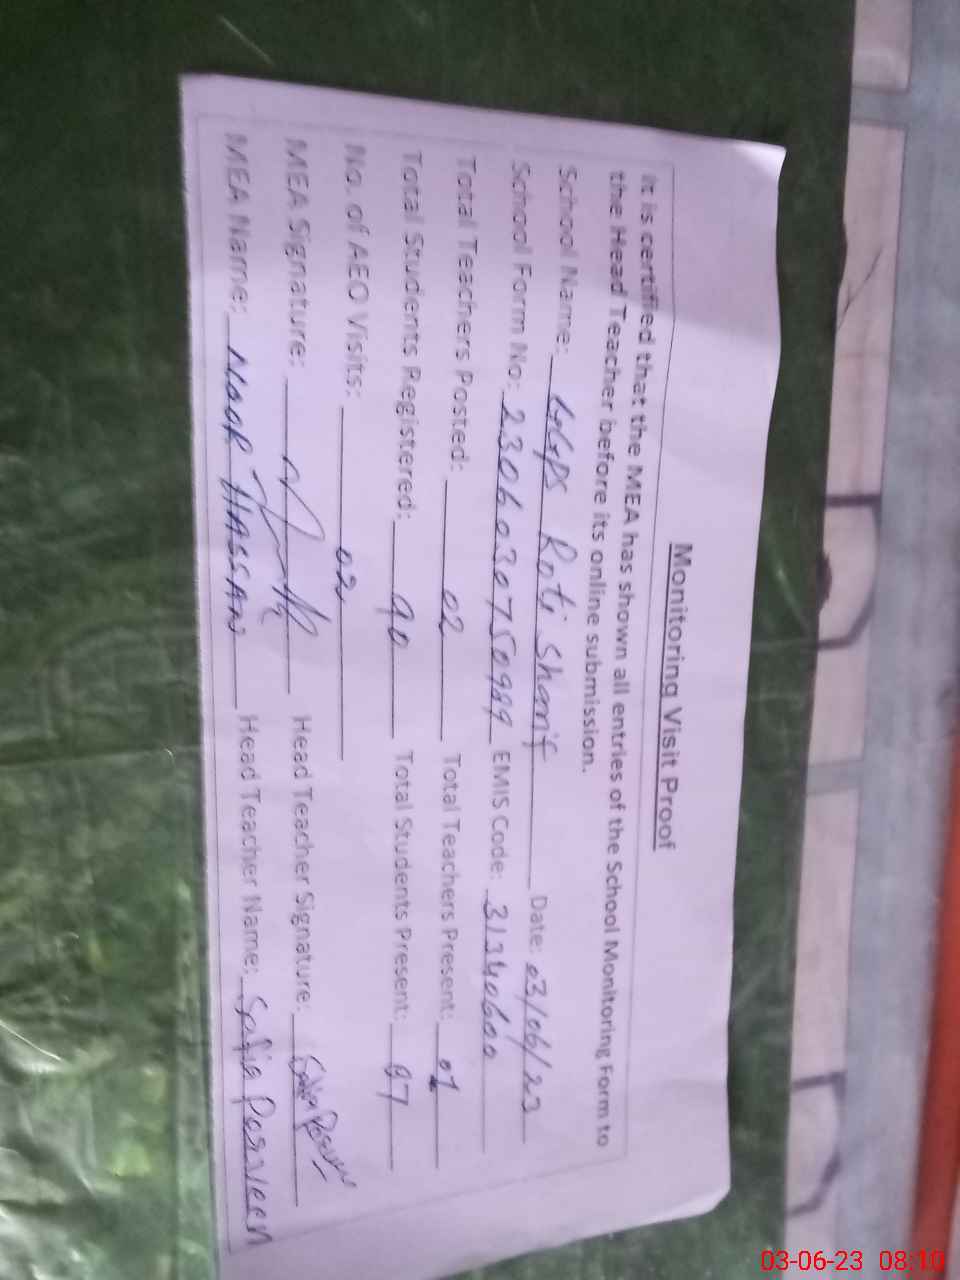 Monitoring Visit Proof
It is certified that the MEA has shown all entries of the School Monitoring Form to
the Head Teacher before its online submission.
School Name: GGPS Roti Sharif Date: 03/06/23
School Form No: EMIS Code: 31340600
Total Teachers Posted: 02 Total Teachers Present: 01
Total Students Registered: 90 Total Students Present: 87
No. of AEO Visits: 02
MEA Signature: Head Teacher Signature: Safia Perveen
MEA Name: NOOR HASSAN Head Teacher Name: Safia Perveen
03-06-23 08:10